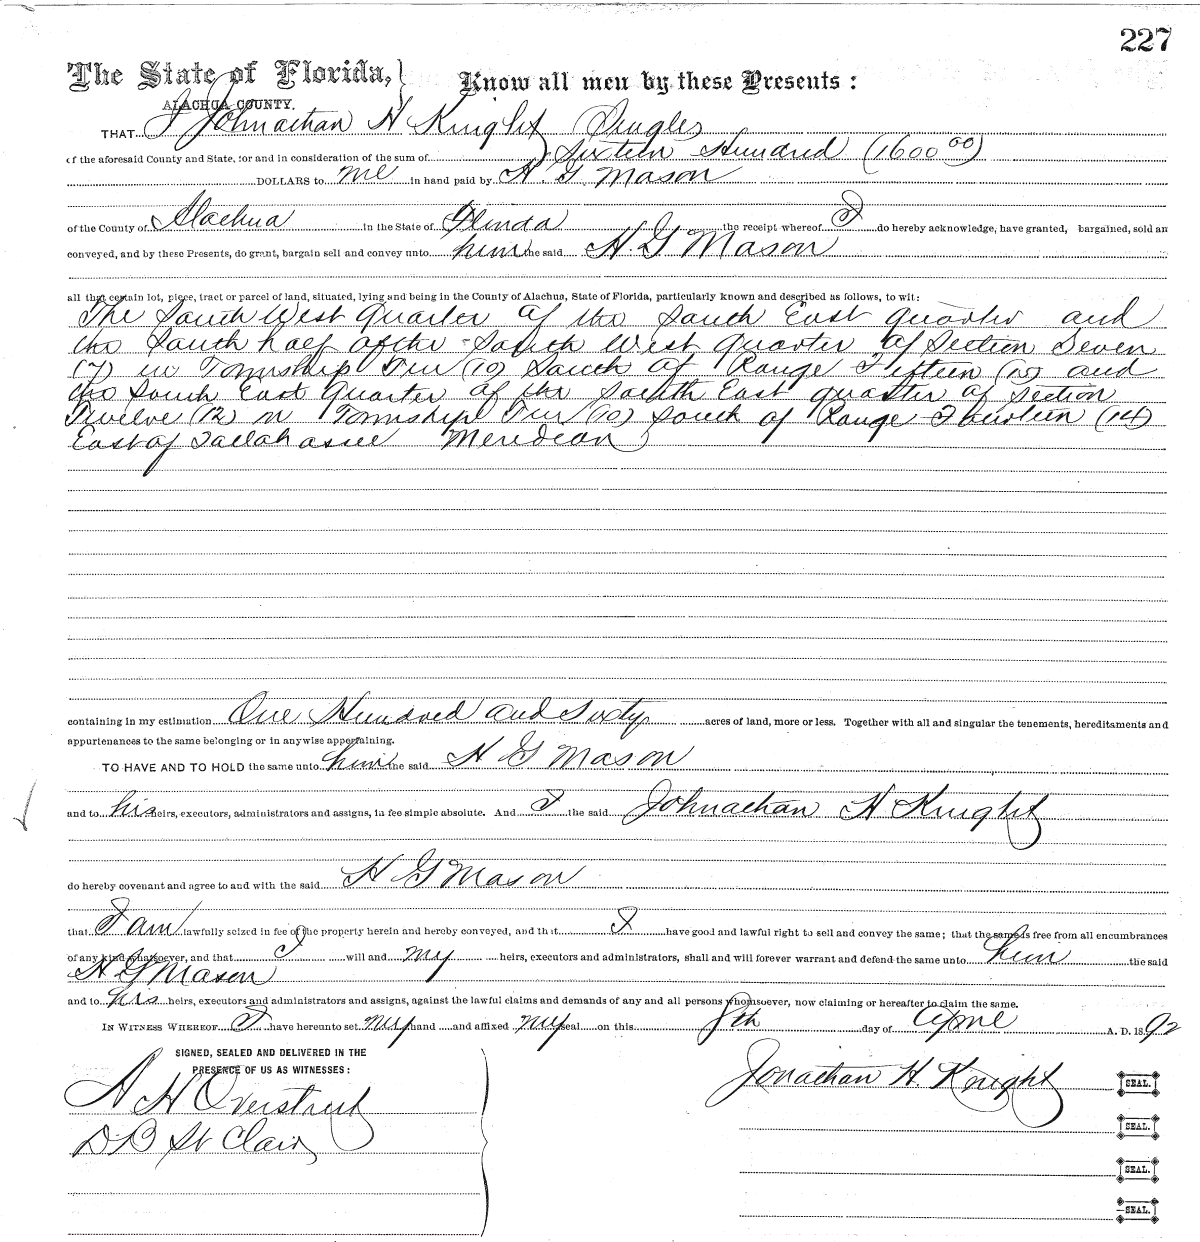 227
The State of Florida,
Know all men by these Presents :
ALACHUA COUNTY.
THAT I Johnathan H Knight Single
of the aforesaid County and State, for and in consideration of the sum of Sixteen Hundred (1600 00)
DOLLARS to me in hand paid by H. G. Mason
of the County of Alachua in the State of Florida the receipt whereof I do hereby acknowledge, have granted, bargained, sold an
conveyed, and by these Presents, do grant, bargain sell and convey unto him the said H. G Mason
all that certain lot, piece, tract or parcel of land, situated, lying and being in the County of Alachua, State of Florida, particularly known and described as follows, to wit:
The South West Quarter of the South East quarter and
the South half of the South West Quarter of Section Seven
(7) in Township Ten (10) South of Range Fifteen (15) and
the South East Quarter of the South East quarter of Section
Twelve (12) in Township Ten (10) South of Range Fourteen (14)
East of Tallahassee Meridean
containing in my estimation One Hundred and Sixty acres of land, more or less. Together with all and singular the tenements, hereditaments and
appurtenances to the same belonging or in anywise appertaining.
TO HAVE AND TO HOLD the same unto him the said H G Mason
and to his heirs, executors, administrators and assigns, in fee simple absolute. And I the said Johnathan H Knight
do hereby covenant and agree to and with the said H G Mason
that I am lawfully seized in fee of the property herein and hereby conveyed, and that I have good and lawful right to sell and convey the same; that the same is free from all encumbrances
of any kind whatsoever, and that I will and my heirs, executors and administrators, shall and will forever warrant and defend the same unto him the said
H G Mason
and to his heirs, executors and administrators and assigns, against the lawful claims and demands of any and all persons whomsoever, now claiming or hereafter to claim the same.
IN WITNESS WHEREOF I have hereunto set my hand and affixed my seal on this 8th day of April A. D. 1892
SIGNED, SEALED AND DELIVERED IN THE
PRESENCE OF US AS WITNESSES:
Jonathan H Knight SEAL.
A H Overstreet
SEAL.
D B St Clair
SEAL.
SEAL.